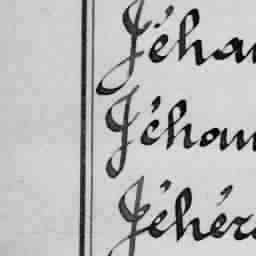 Jéhan
Jéhan
Jéhér